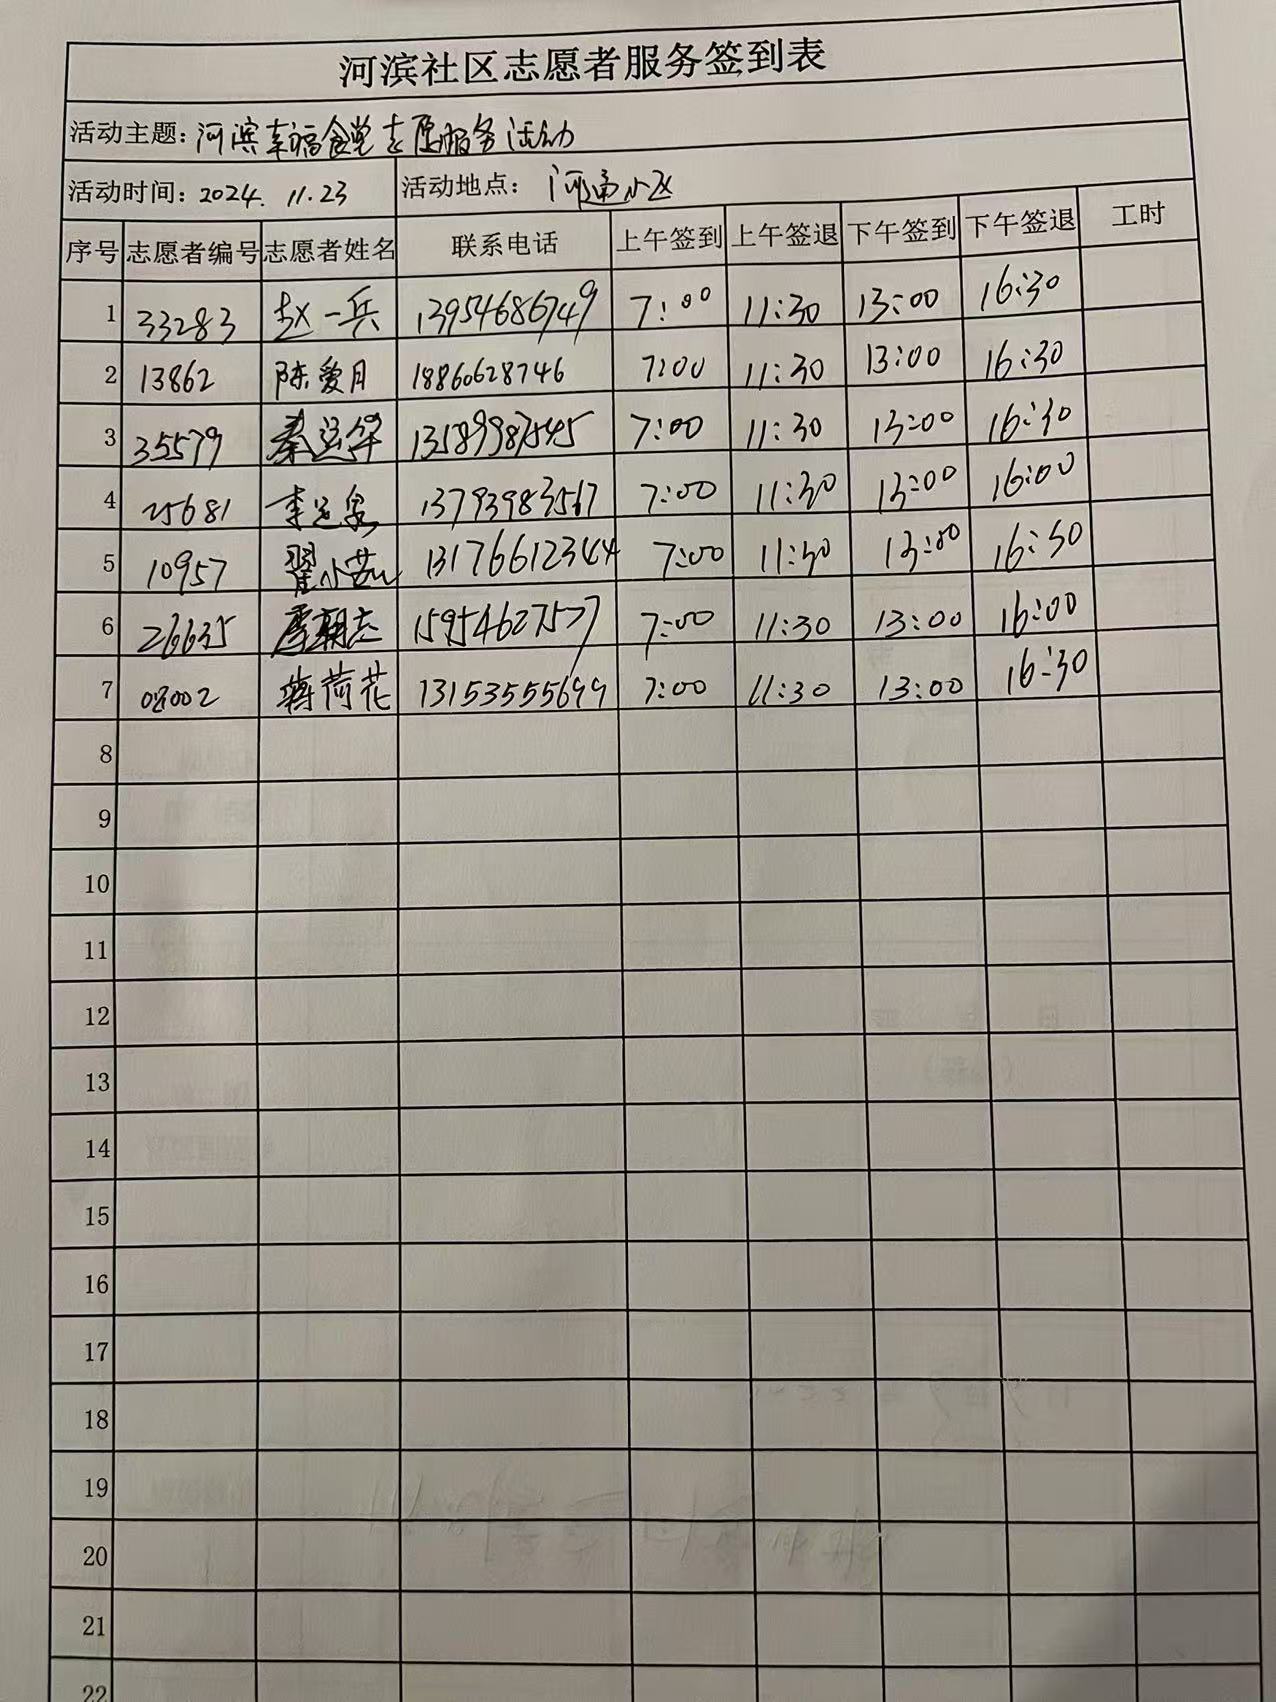 河滨社区志愿者服务签到表
活动主题：河滨幸福食堂志愿服务活动
活动时间：2024.11.23 活动地点：河滨小区
序号 志愿者编号 志愿者姓名 联系电话 上午签到 上午签退 下午签到 下午签退 工时
1 33283 赵一兵 13954686749 7:00 11:30 13:00 16:30
2 13862 陈爱月 18860628746 7:00 11:30 13:00 16:30
3 35579 秦运华 13589987545 7:00 11:30 13:00 16:30
4 25681 李运泉 13793983567 7:00 11:30 13:00 16:00
5 10957 翟小茹 13176612344 7:00 11:30 13:00 16:30
6 26635 朝志 15954627577 7:00 11:30 13:00 16:00
7 08002 蒋荷花 13153555699 7:00 11:30 13:00 16:30
8
9
10
11
12
13
14
15
16
17
18
19
20
21
22